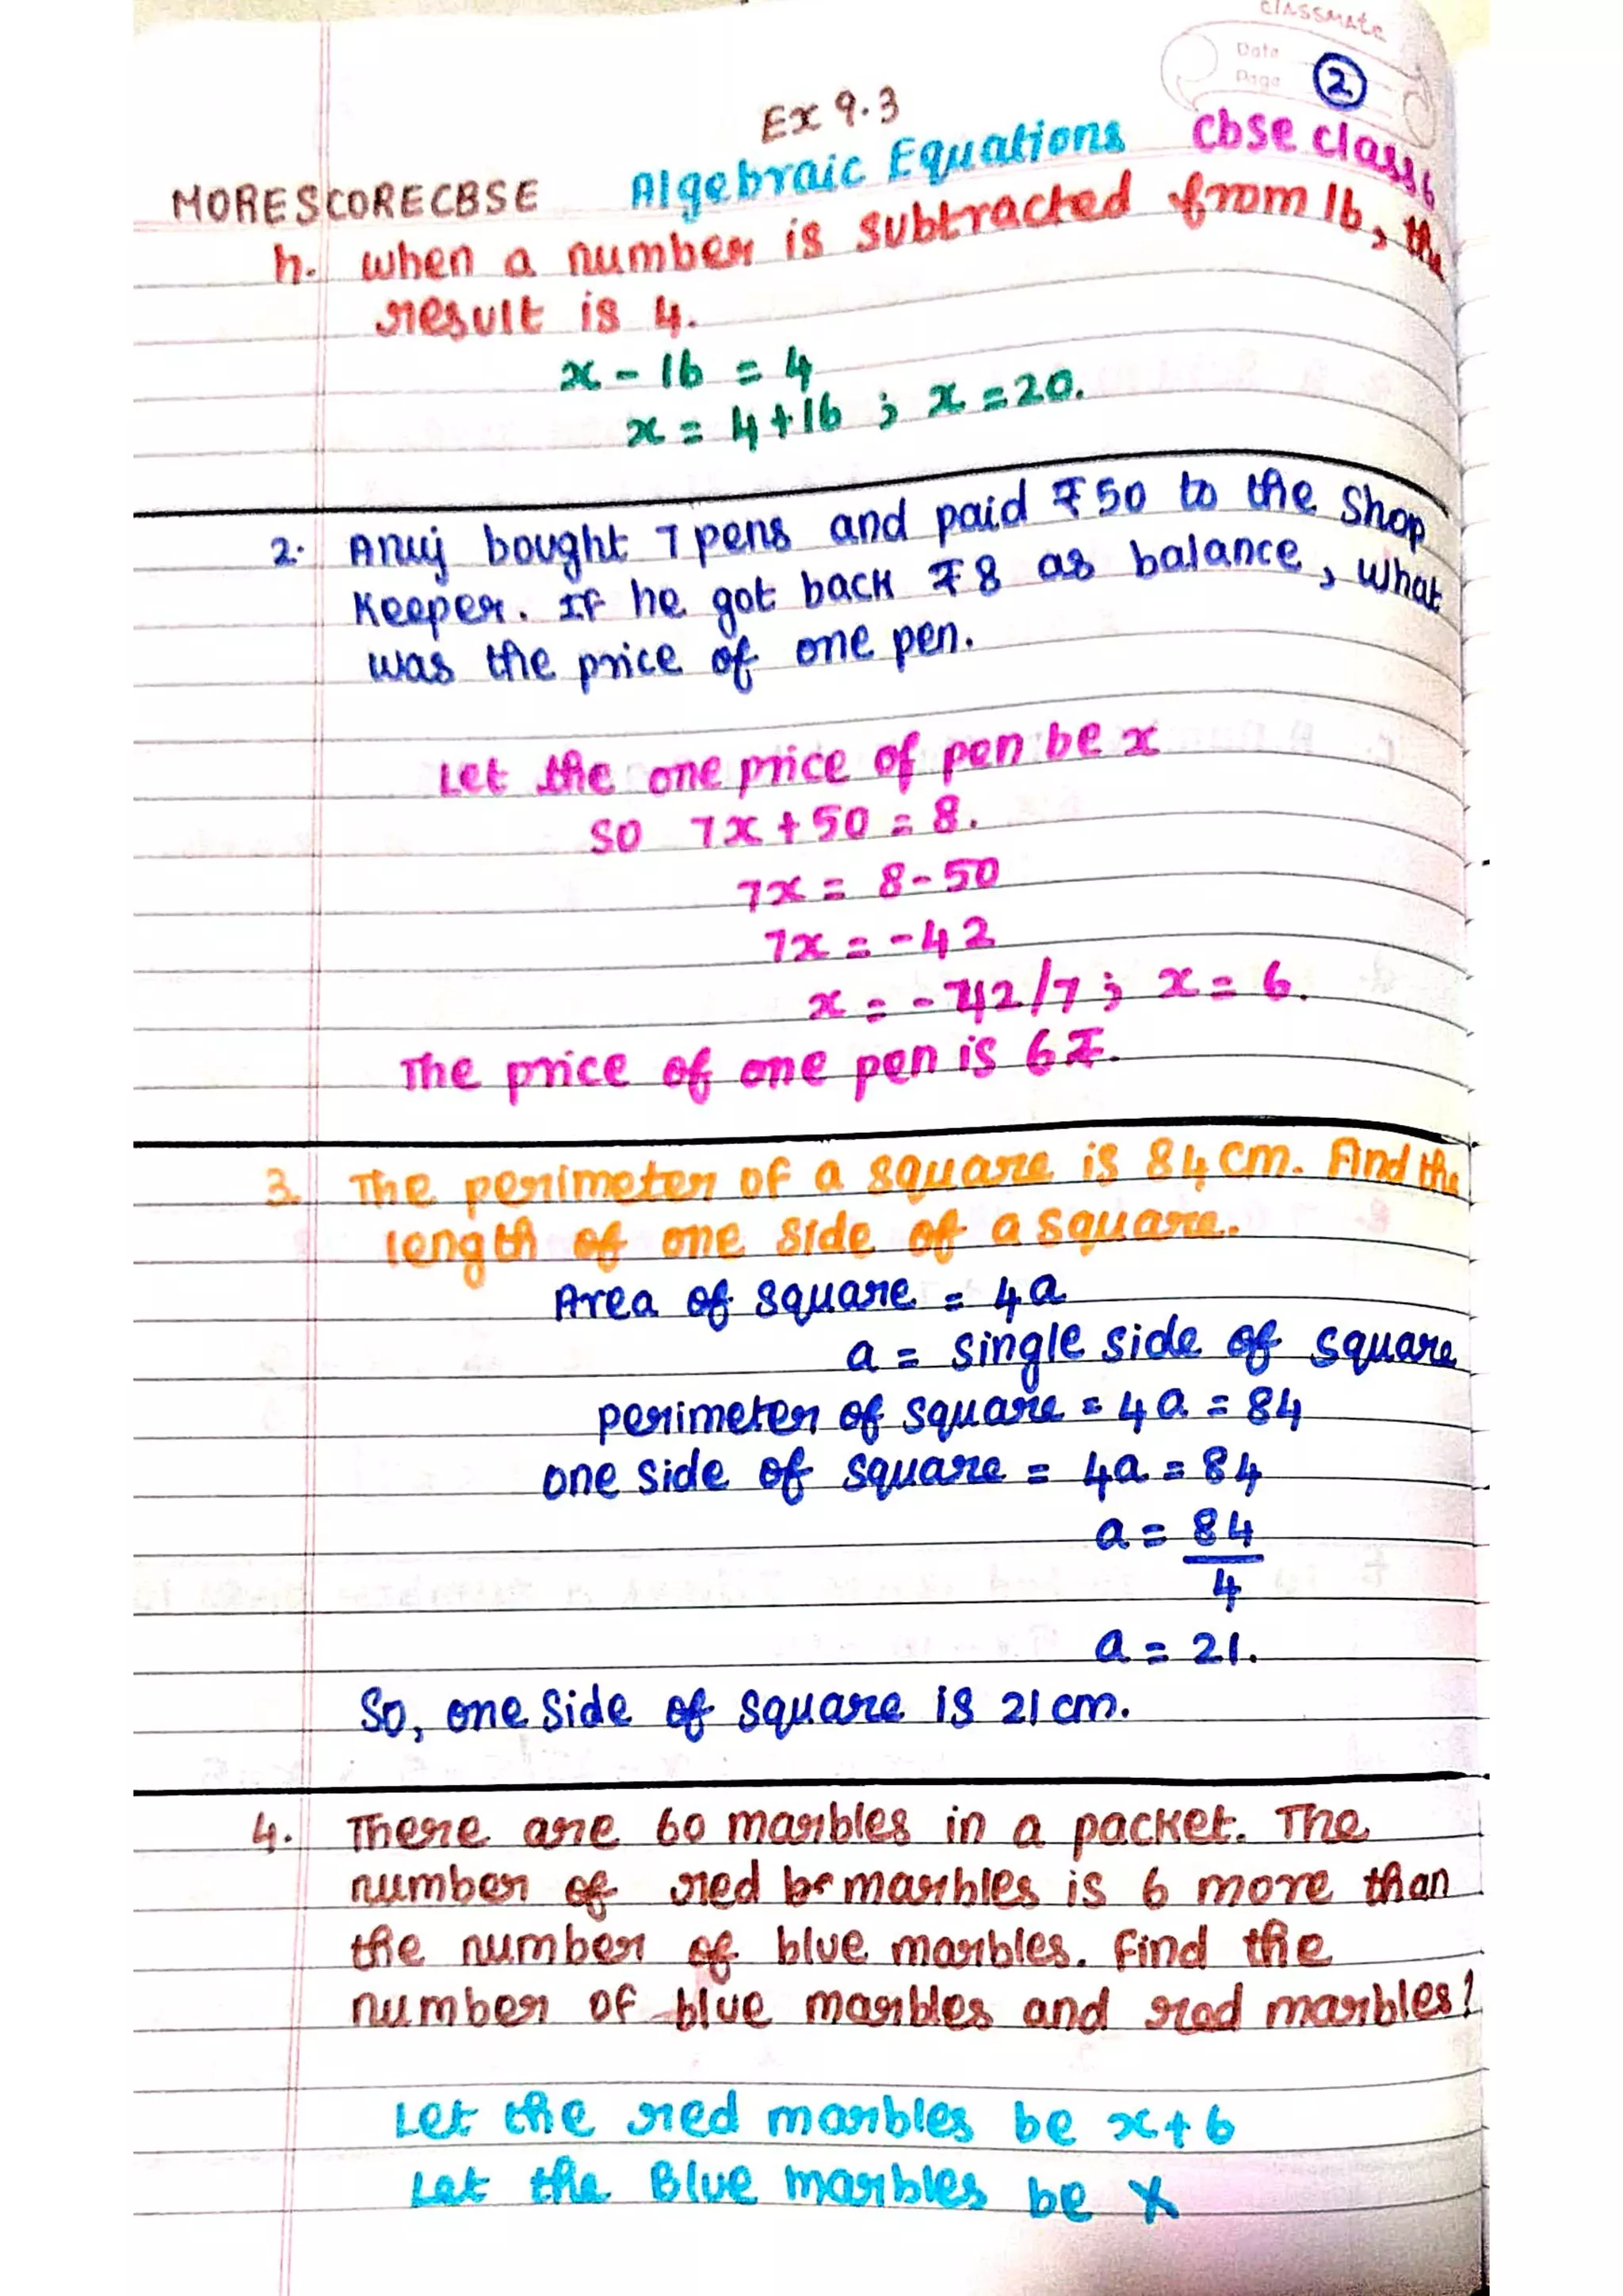 classmate
Date
Page 2
Ex 9.3
MORESCORECBSE Algebraic Equations Cbse class 6
h. when a number is subtracted from 16, the
result is 4.
x - 16 = 4
x = 4+16 ; x = 20.
2. Anuj bought 7 pens and paid ₹50 to the Shop
Keeper. If he got back ₹8 as balance, what
was the price of one pen.
Let the one price of pen be x
SO 7x + 50 = 8.
7x = 8-50
7x = -42
x = -42/7 ; x = 6.
The price of one pen is 6₹.
3. The perimeter of a square is 84 cm. Find the
length of one side of a square.
Area of square = 4a
a = single side of square
perimeter of square = 4a = 84
one side of square = 4a = 84
a = 84
4
a = 21.
So, one side of square is 21 cm.
4. There are 60 marbles in a packet. The
number of red marbles is 6 more than
the number of blue marbles. Find the
number of blue marbles and red marbles?
Let the red marbles be x+6
Let the Blue marbles be x